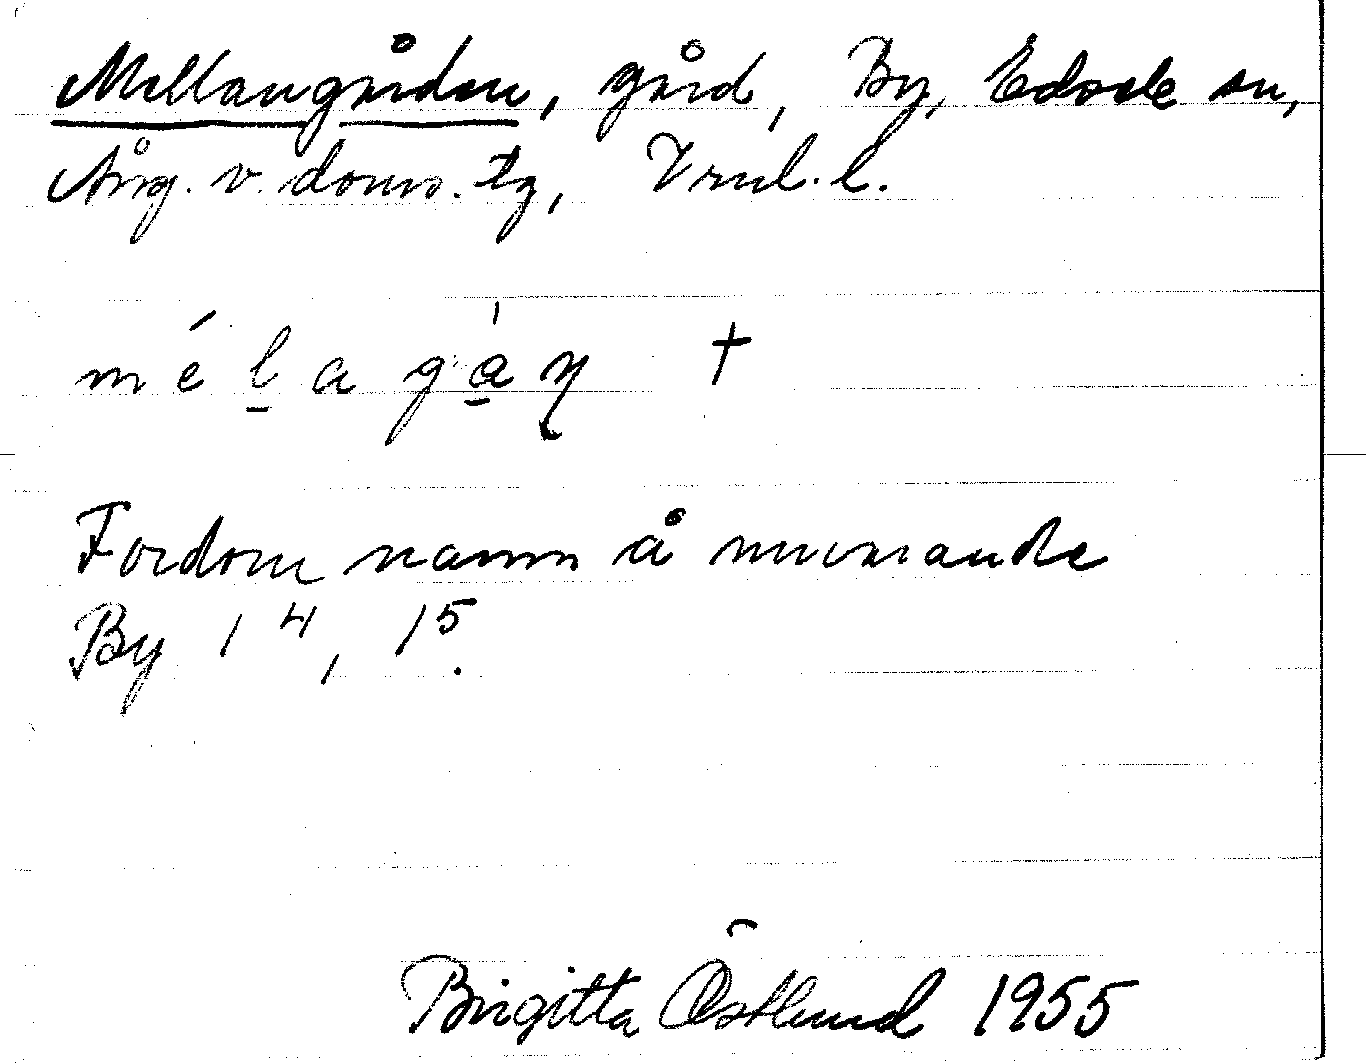 Mellangården, gård, By, Edsele sn,
Ång. v. doms. tg, Vnl. l.
mélagàṇ †
Fordom namn å nuvarande
By 1⁴, 1⁵.
Birgitta Östlund 1955